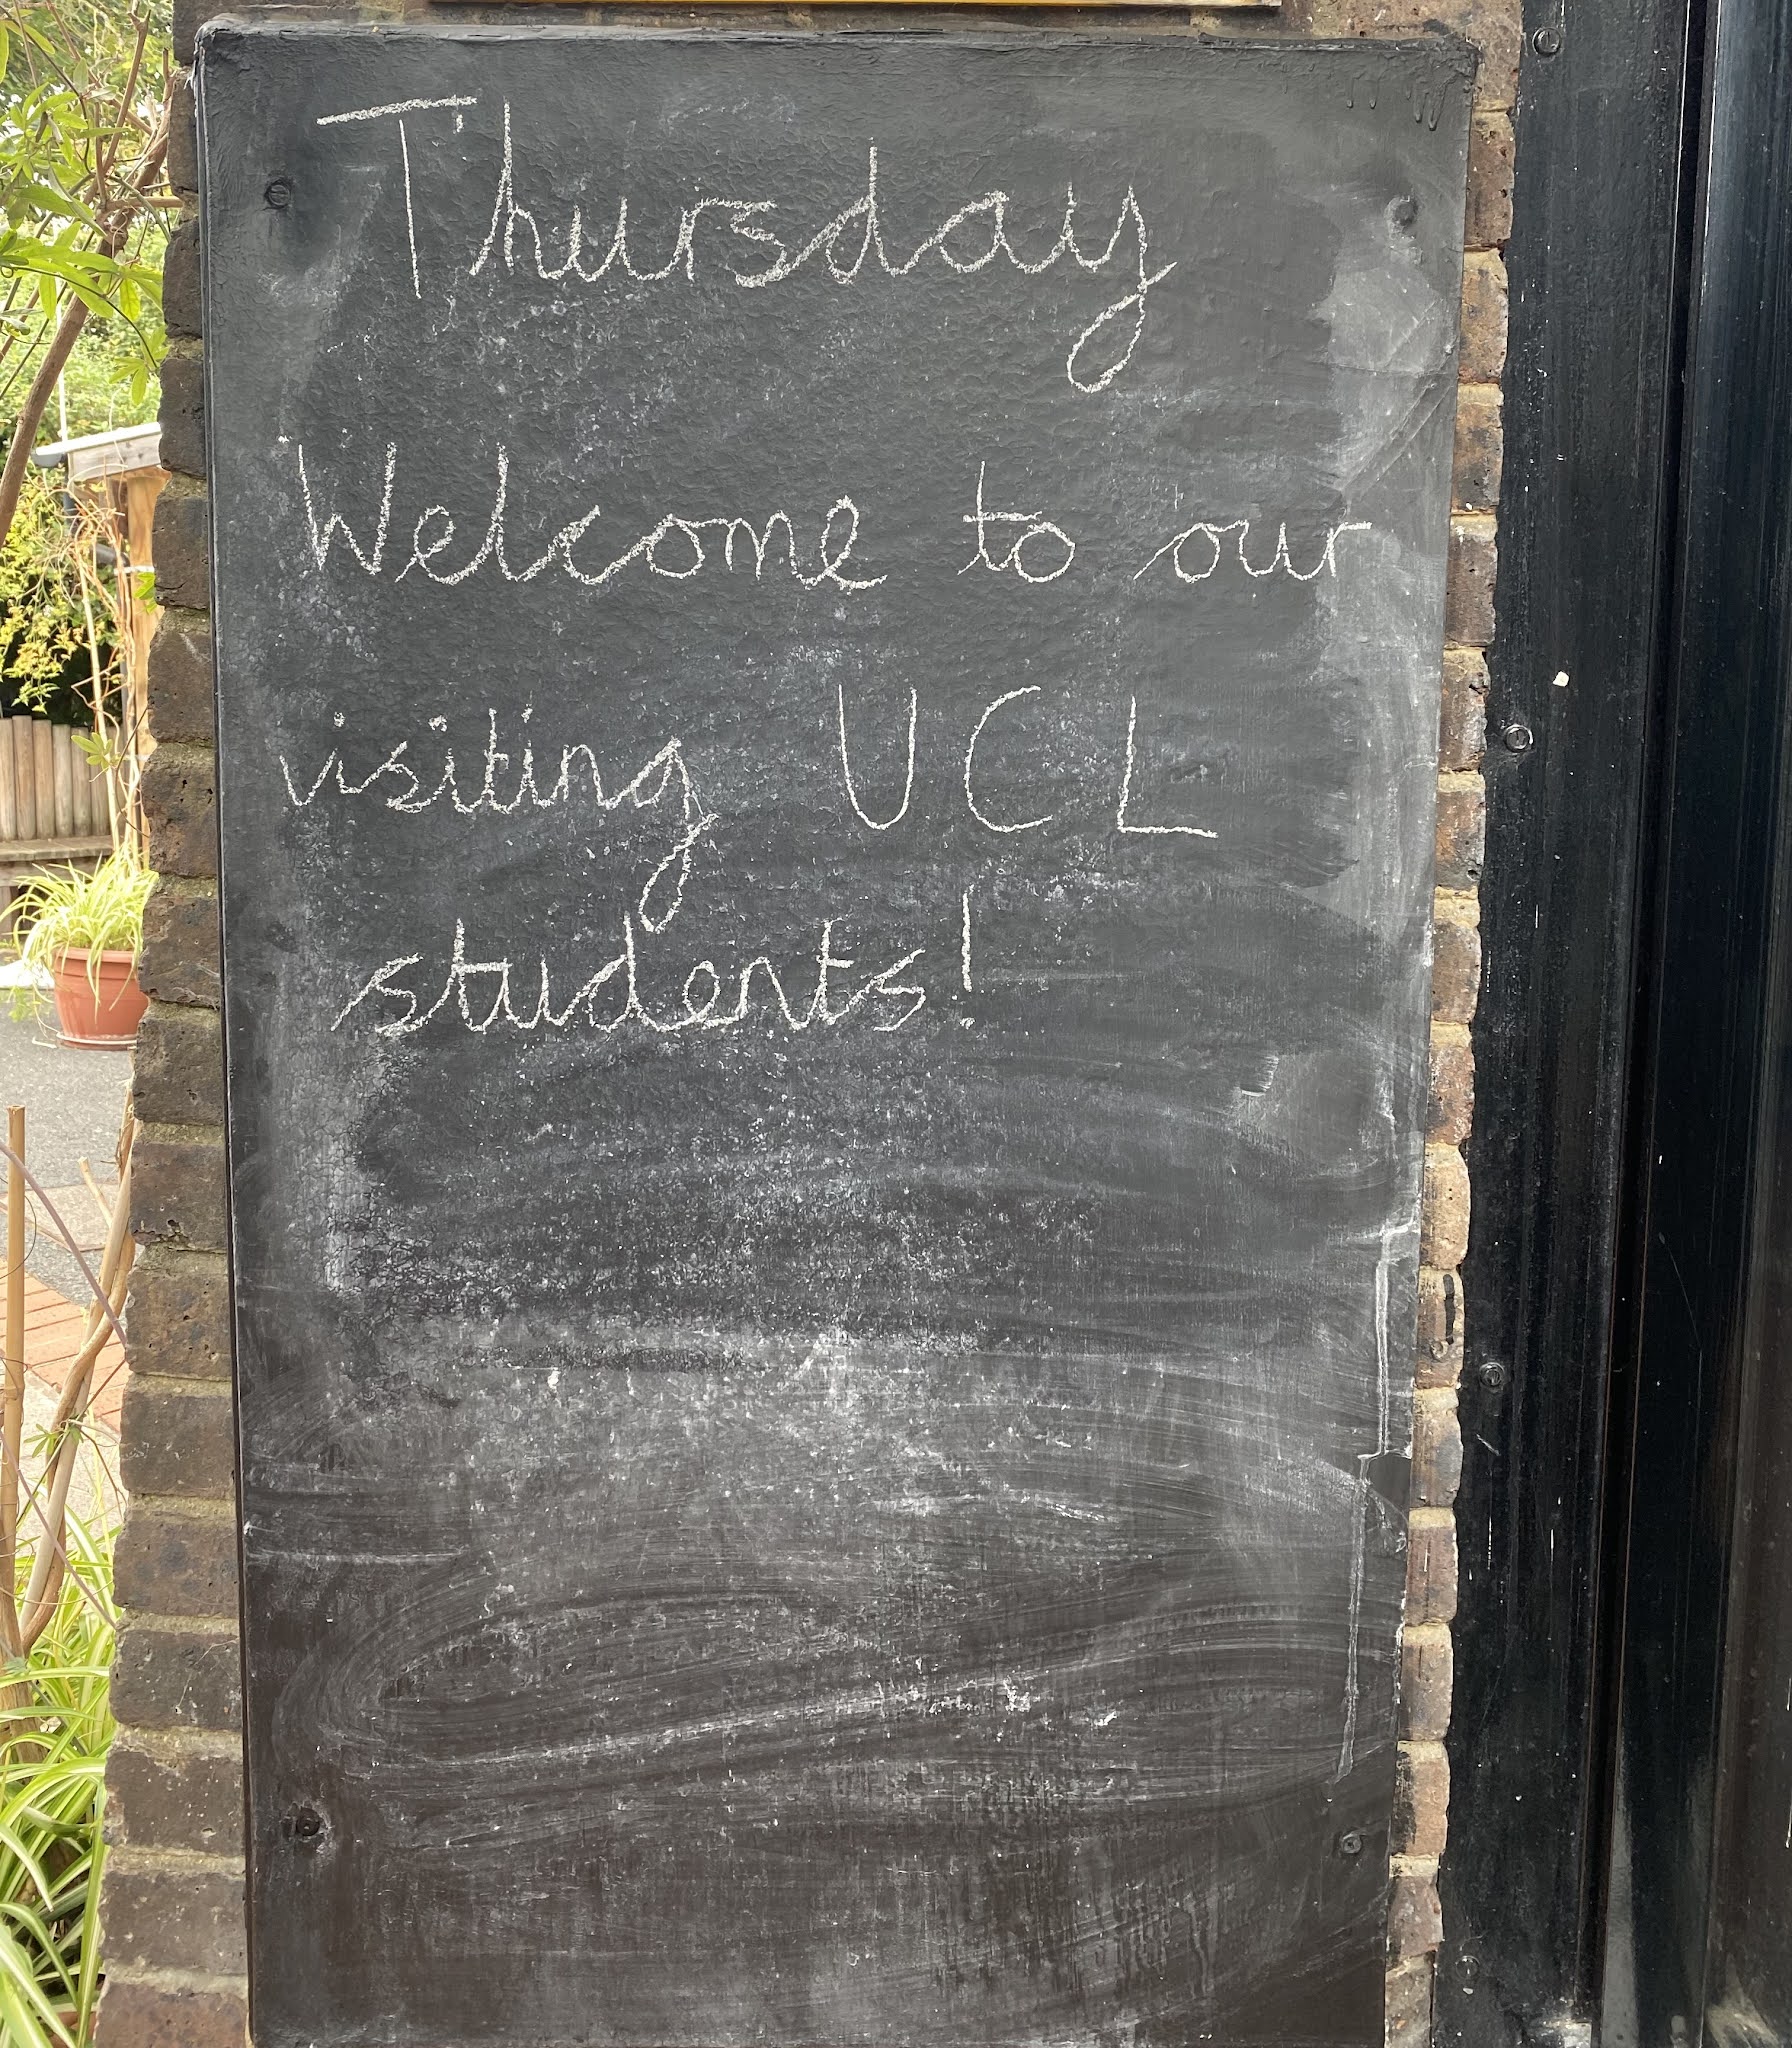 Thursday
Welcome to our
visiting UCL
students!